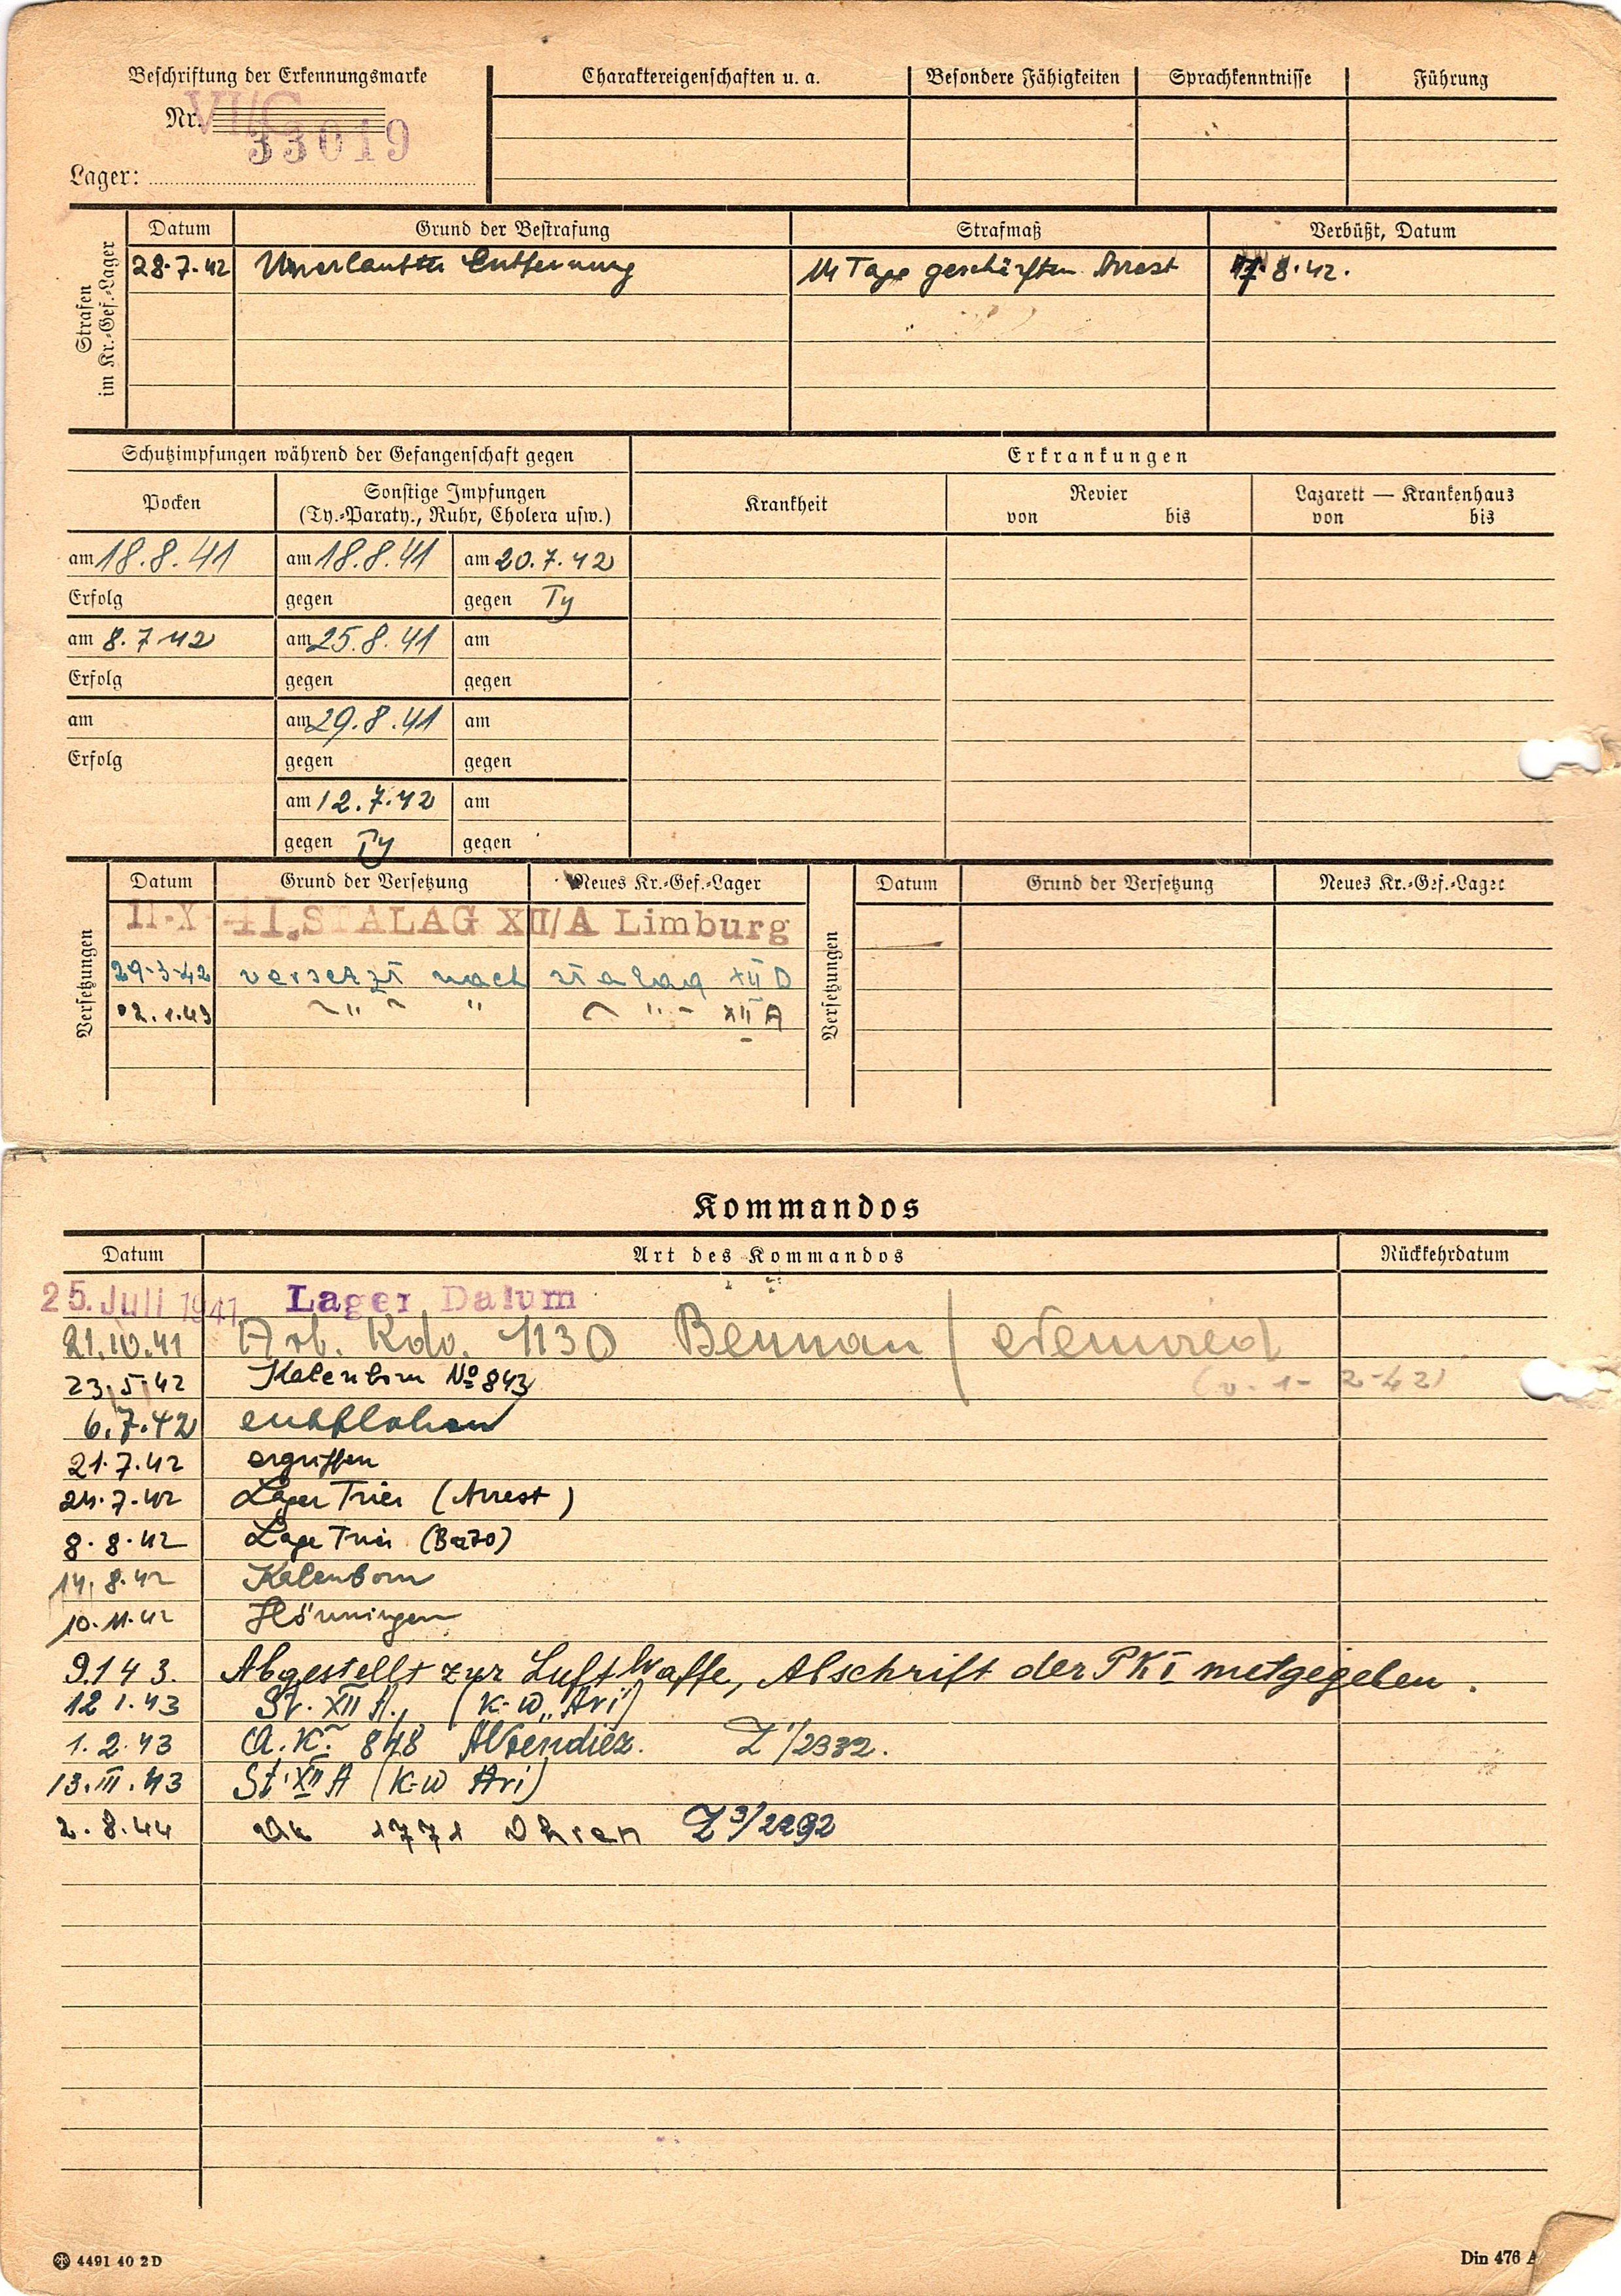 Beschriftung der Erkennungsmarke
Nr. VI/C
33019
Lager:
Charaktereigenschaften u. a.
Besondere Fähigkeiten
Sprachkenntnisse
Führung
Strafen
im Kr.-Gef.-Lager
Datum
Grund der Bestrafung
Strafmaß
Verbüßt, Datum
28.7.42 Unerlaubte Entfernung 14 Tage geschärften Arrest 8.42.
Schutzimpfungen während der Gefangenschaft gegen
Erkrankungen
Pocken
Sonstige Impfungen
(Ty.-Paraty., Ruhr, Cholera usw.)
Krankheit
Revier
von bis
Lazarett — Krankenhaus
von bis
am 18.8.41 am 18.8.41 am 20.7.42
Erfolg gegen gegen Ty
am 8.7.42 am 25.8.41 am
Erfolg gegen gegen
am am 29.8.41 am
Erfolg gegen gegen
am 12.7.42 am
gegen Ty gegen
Versetzungen
Datum Grund der Versetzung Neues Kr.-Gef.-Lager
11-X-41. STALAG XII/A Limburg
29-3-42 versetzt nach stalag XII D
02.1.43 " " " XII A
Versetzungen
Datum Grund der Versetzung Neues Kr.-Gef.-Lager
Kommandos
Datum Art des Kommandos Rückkehrdatum
25. Juli 1941 Lager Datum
21.10.41 Arb. Kdo. 1130
23.5.42 Kalenborn No 843 (v. 1-2-42)
6.7.42 entflohen
21.7.42 ergriffen
24.7.42 Lager Trier (Arrest)
8.8.42 Lager Trier
14.8.42 Kalenborn
10.11.42 Hönningen
9.1.43. Abgestellt zur Luftwaffe, Abschrift der PK I metgegeben.
12 1.43 St. XII A., (K-W „Ari")
1.2.43 A.K. 848 Altendiez. Z 1/2332.
13.III.43 St. XII A (K-W Ari)
2.8.44 AK 1771 Ohren Z 3/2292
4491 40 2 D
Din 476 A